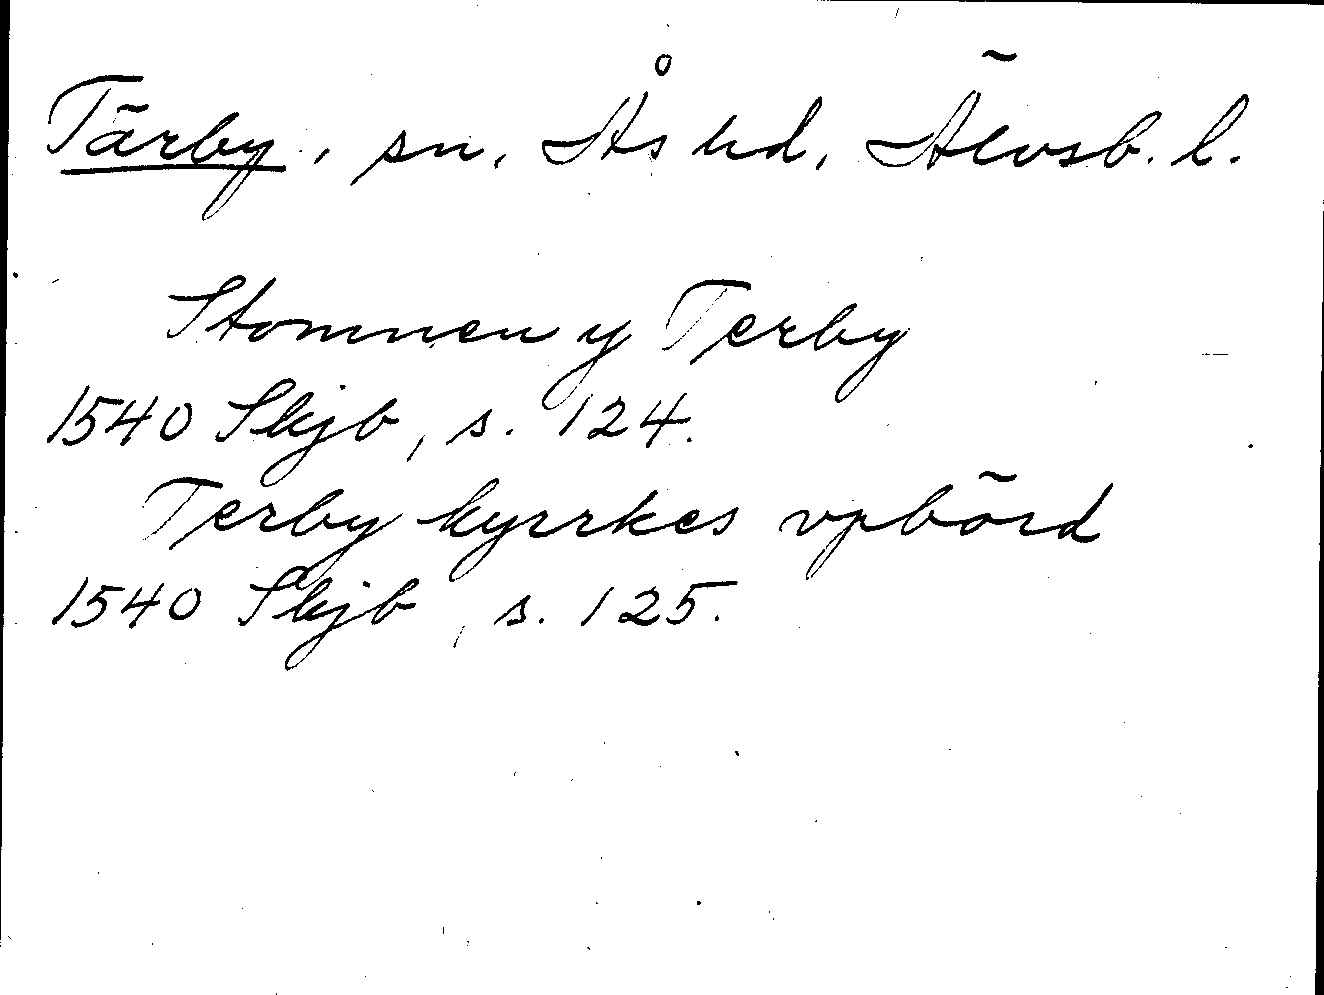 Tärby, sn, Ås hd, Älvsb. l.
Stomnen y Terby
1540 Skjb, s. 124.
Terby kyrrkes vpbörd
1540 Skjb, s. 125.